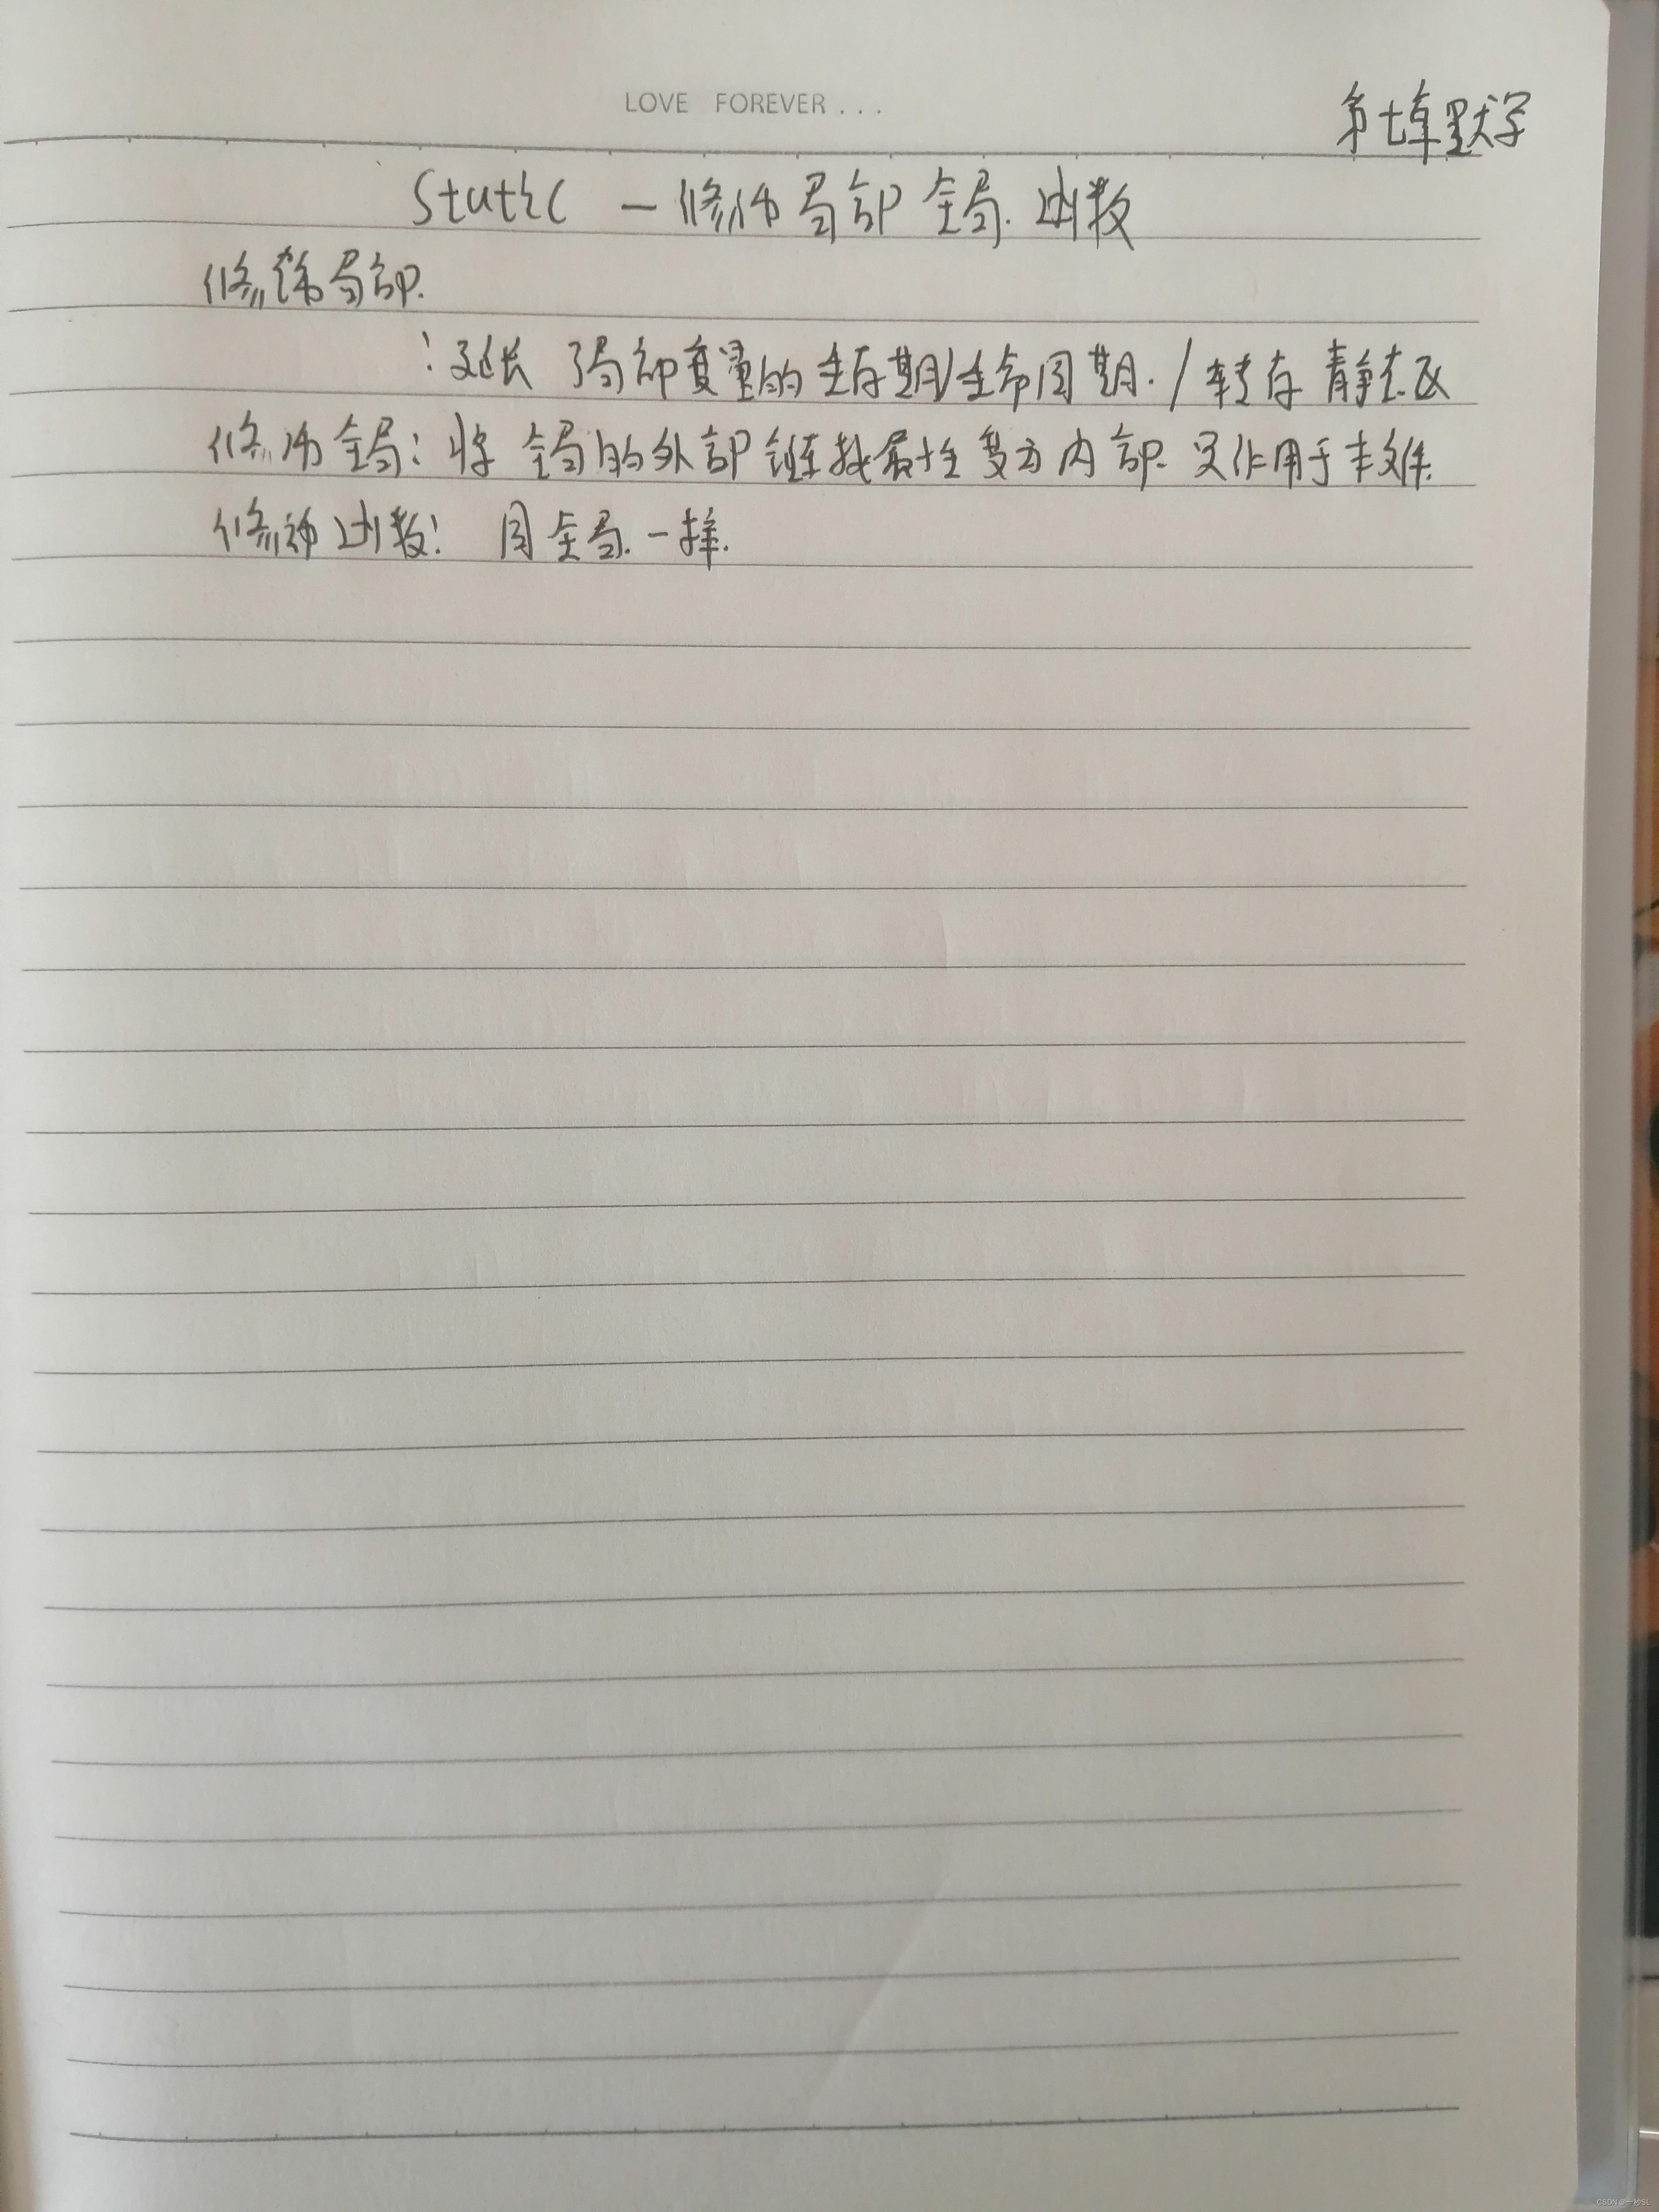 LOVE FOREVER...
第七章默写
Static — 修饰局部 全局. 函数
修饰局部.
:延长 了局部变量的生存期/生命周期. / 转存 静态区
修饰全局: 将 全局的外部链接属性变为内部. 只作用于本文件.
修饰函数: 同全局.一样.
CSDN @一秒SL